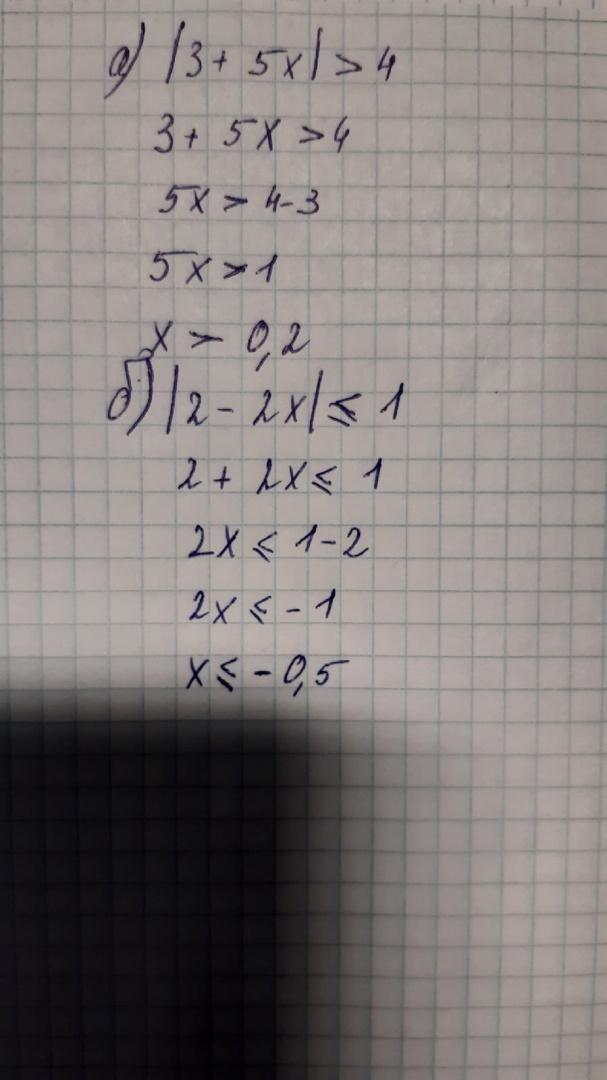 а) |3 + 5x| > 4
3 + 5x > 4
5x > 4-3
5x > 1
x > 0,2
б) |2 - 2x| ≤ 1
2 + 2x ≤ 1
2x ≤ 1-2
2x ≤ -1
x ≤ -0,5